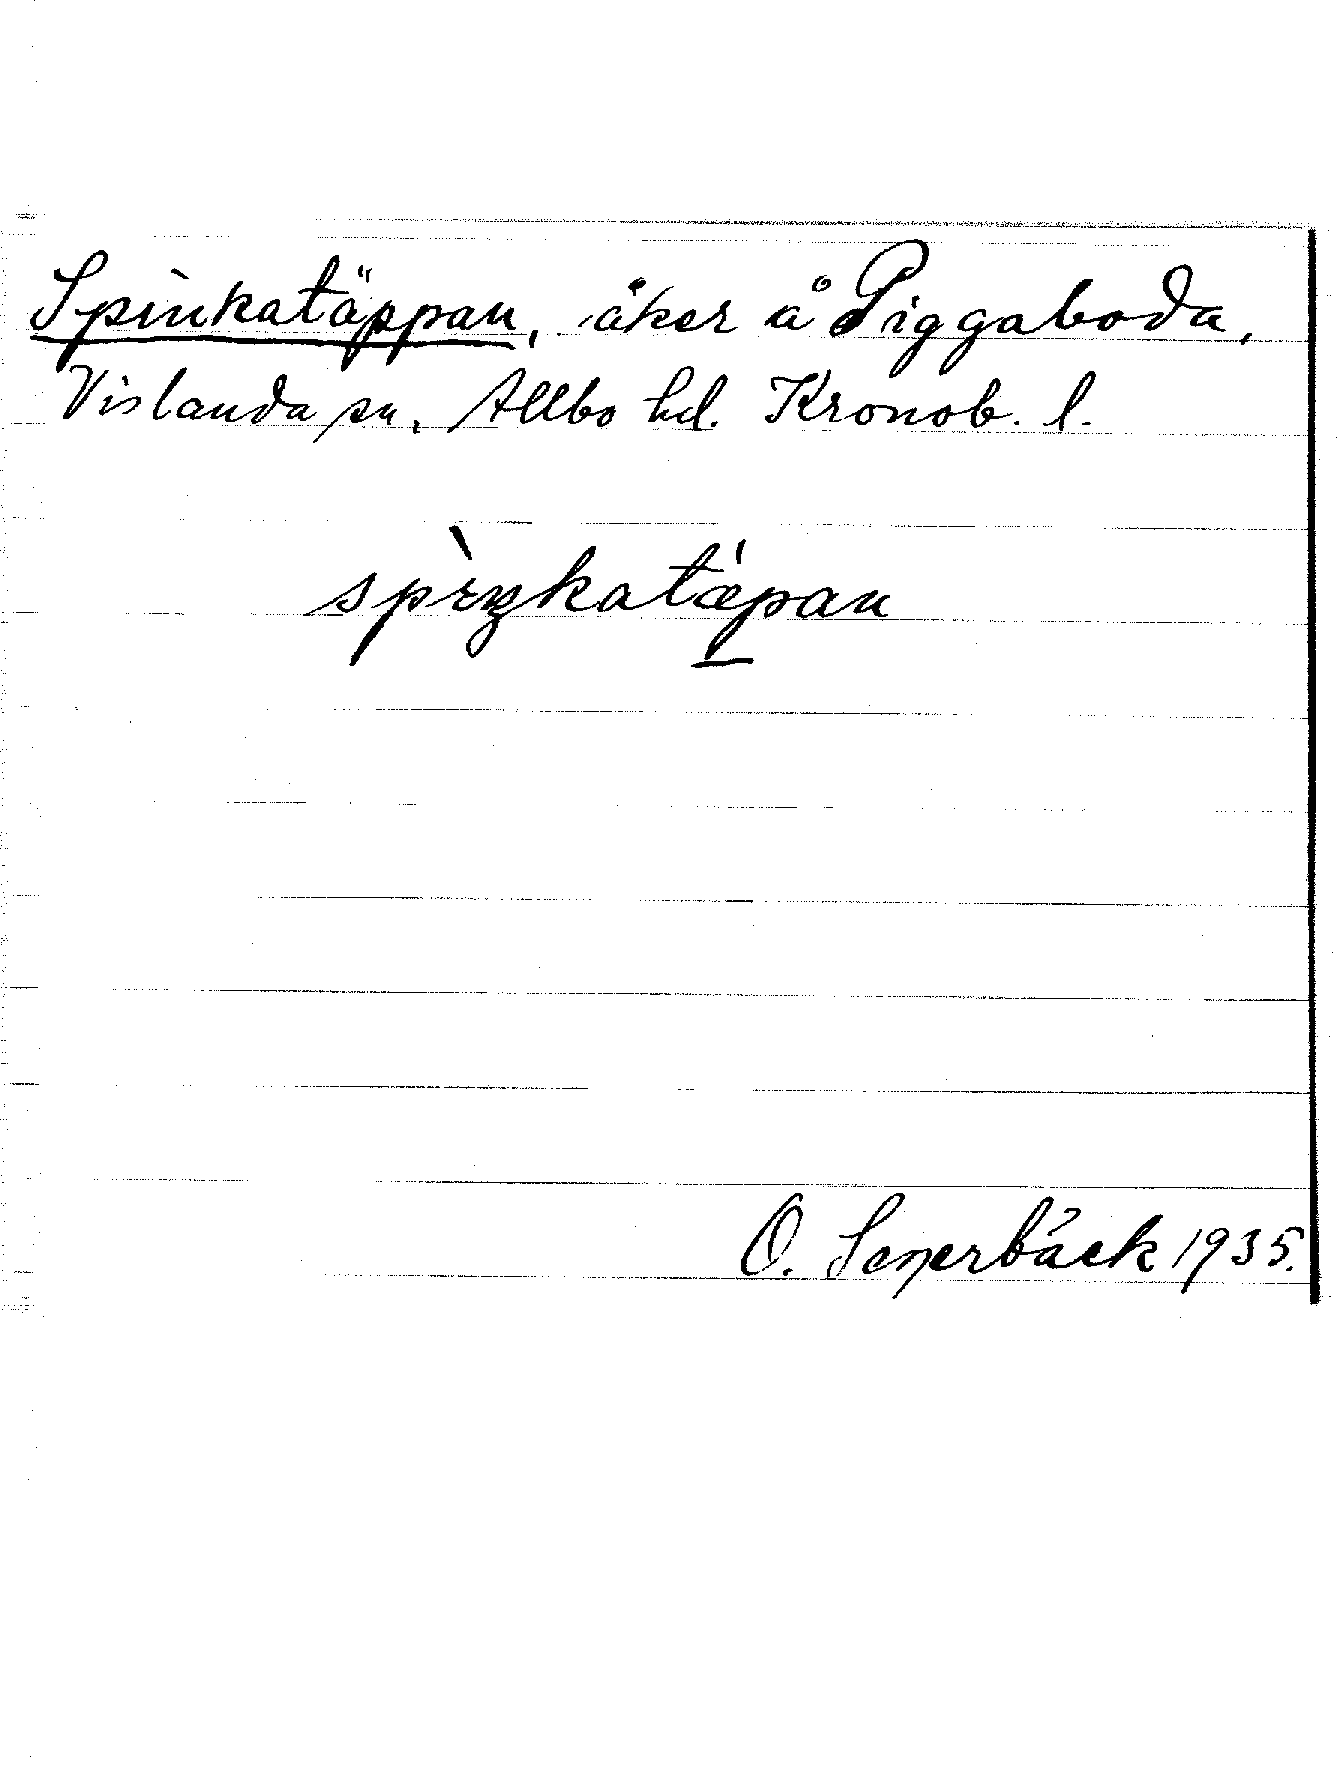 Spinkatäppan, åker å Piggaboda,
Vislanda sn, Allbo hd. Kronob. l.
spìŋkatæ̀pan
O. Senerbäck 1935.